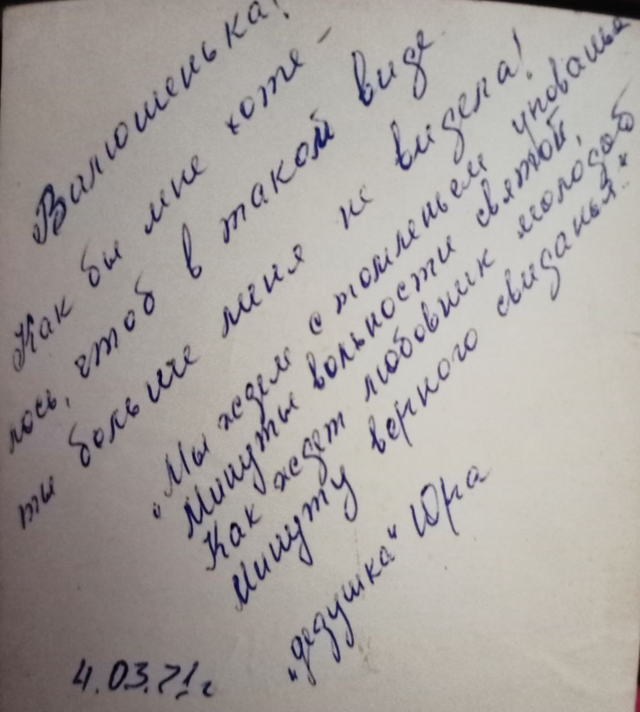 Валюшенька!
Как бы мне хоте-
лось, чтоб в таком виде
ты больше меня не видела!
„Мы ждем с томленьем упованья
Минуты вольности святой,
Как ждет любовник молодой
Минуту верного свиданья."
„дедушка" Юра
4.03.71г